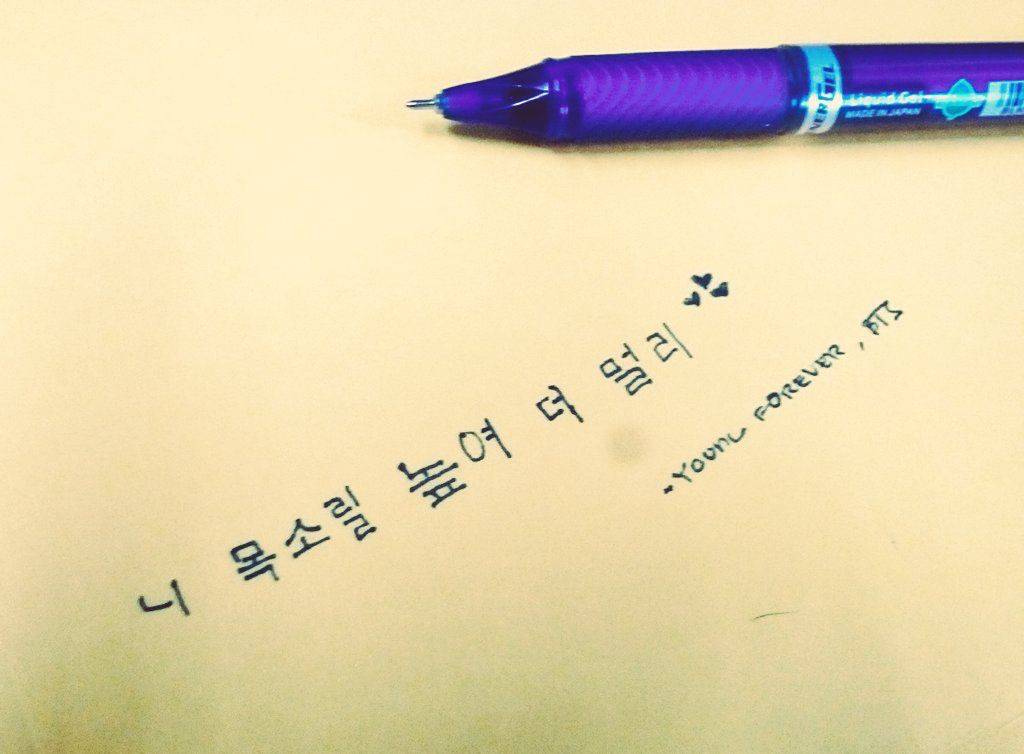 NERGEL
Liquid Gel
MADE IN JAPAN
니 목소릴 높여 더 멀리
- YOUNG FOREVER, BTS